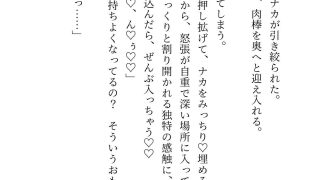 ナカが引き絞られた。
肉棒を奥へと迎え入れる。
てしまう。
押し拡げて、ナカをみっちり♡埋める
から、怒張が自重で深い場所に入って
っくりと割り開かれる独特の感触に、
♡、ん゛ぅ♡♡」
込んだら、ぜんぶ入っちゃう♡♡
持ちよくなってるの？　そういうおも
っ……」